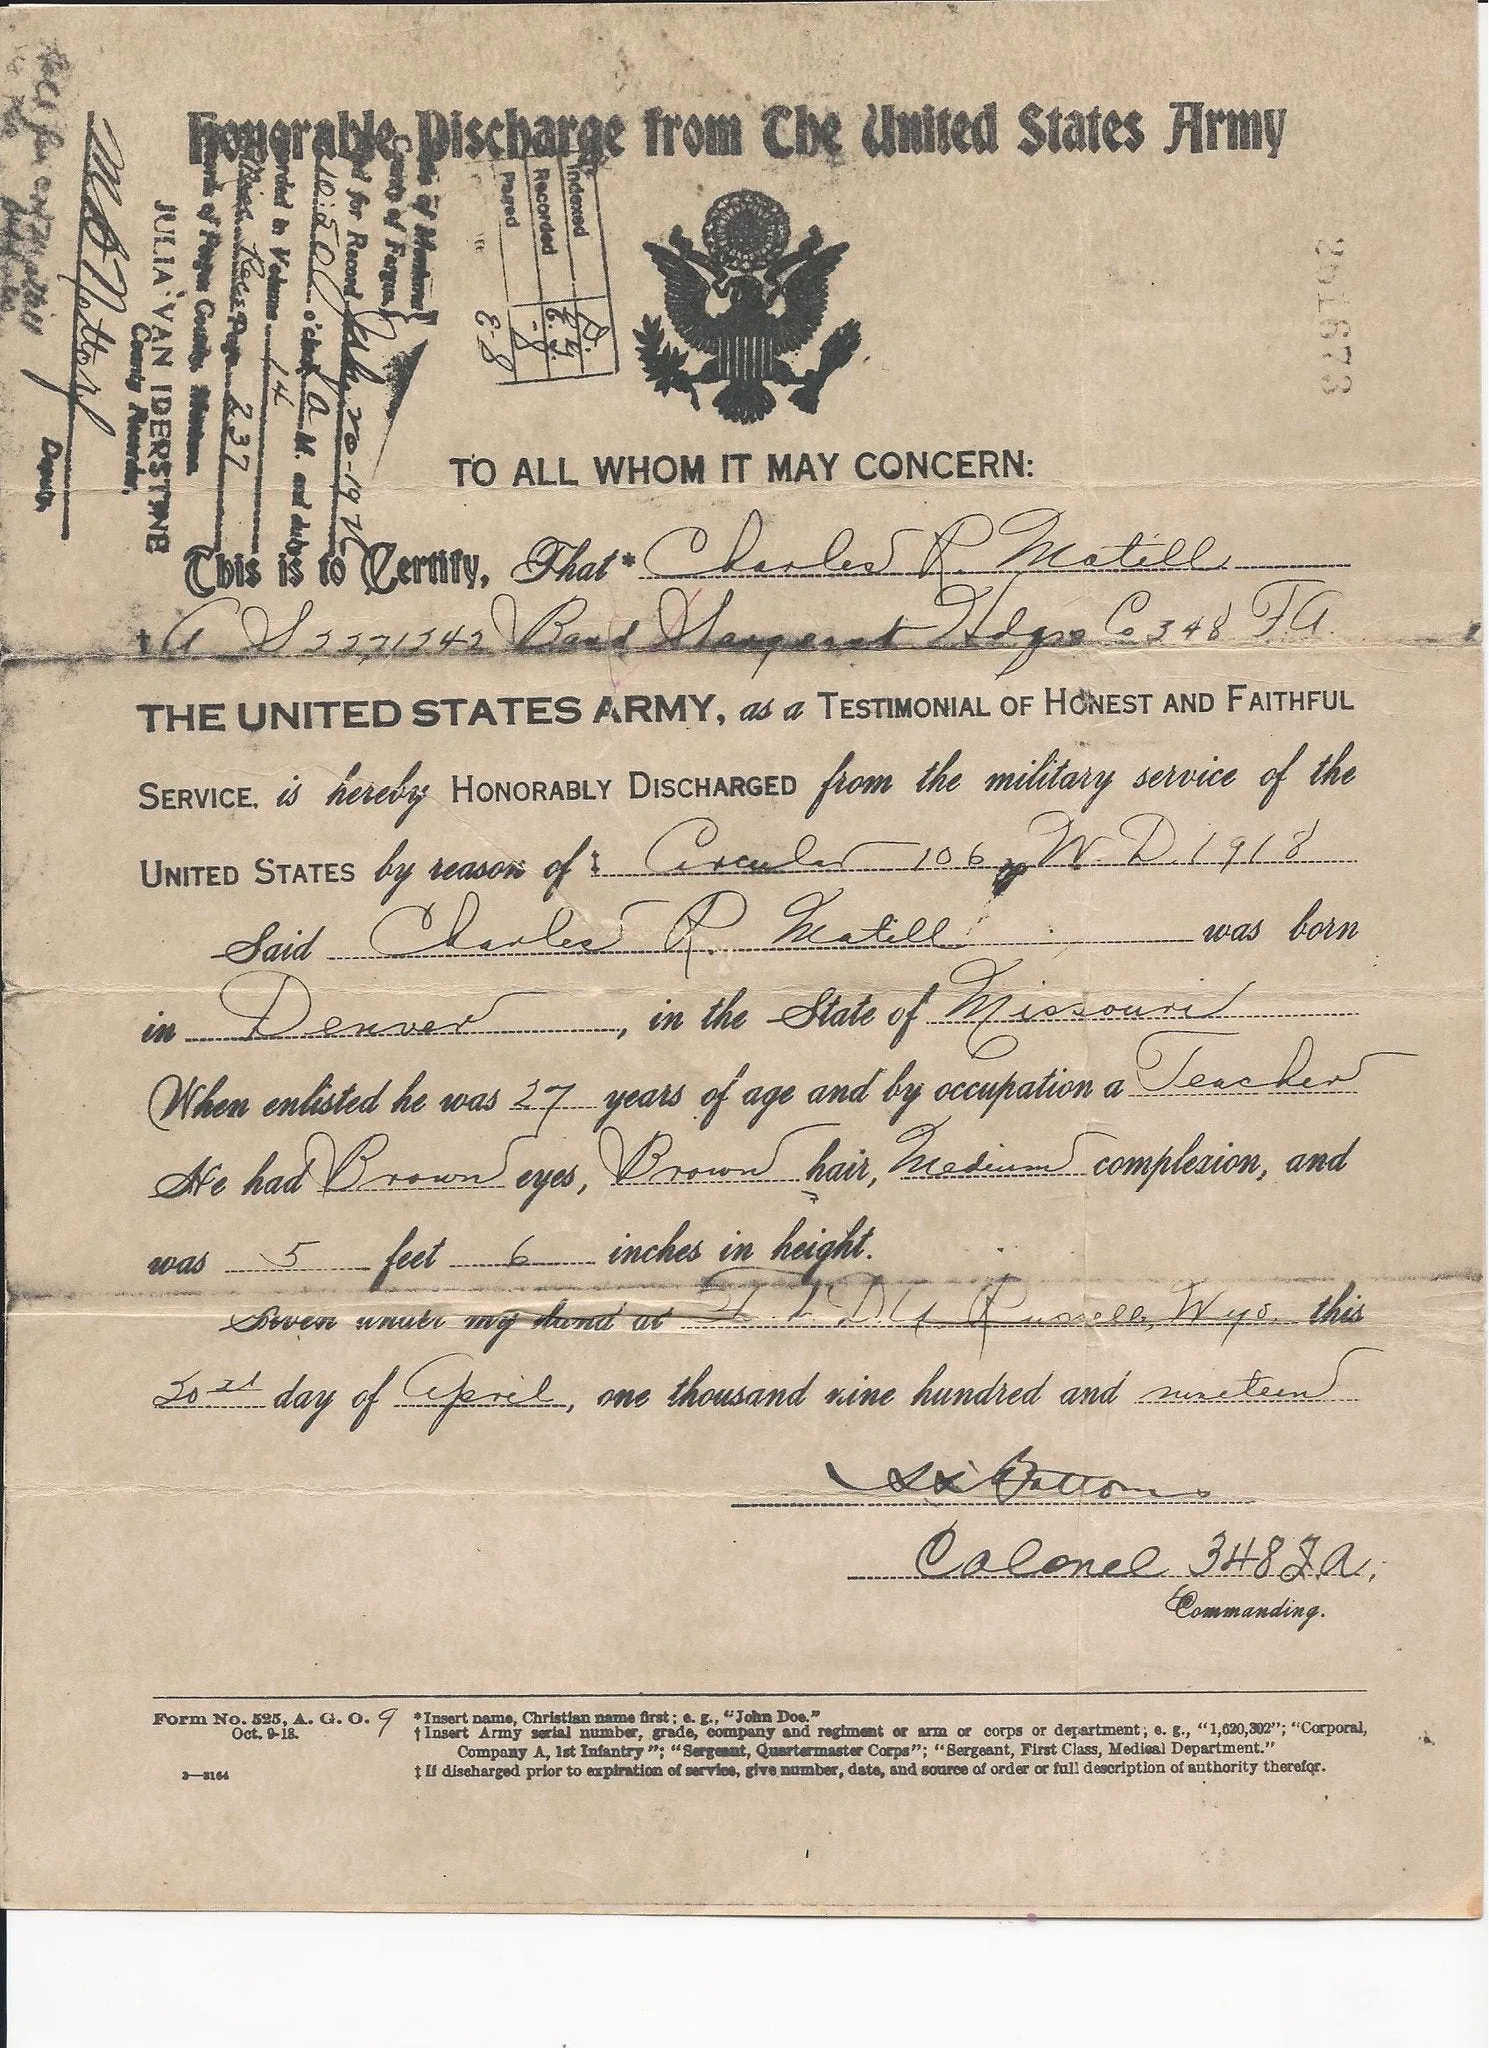 Honorable Discharge from The United States Army
State of Montana
County of Fergus
for Record July 20-192
10:50 o'clock A M. and duly
Recorded in Volume 14
Misc. Page 237
Records of Fergus County, Montana
JULIA VAN IDERSTINE
County Recorder.
Deputy
Indexed
Recorded
Paged
E-8
201673
TO ALL WHOM IT MAY CONCERN:
This is to Certify, That* Charles R. Matill
† A S 3271342 Band Sergeant Hdqrs Co 348 F.A.
THE UNITED STATES ARMY, as a TESTIMONIAL OF HONEST AND FAITHFUL
SERVICE, is hereby HONORABLY DISCHARGED from the military service of the
UNITED STATES by reason of ‡ Circular 106 W.D. 1918
Said Charles R. Matill was born
in Denver, in the State of Missouri
When enlisted he was 27 years of age and by occupation a Teacher
He had Brown eyes, Brown hair, Medium complexion, and
was 5 feet 6 inches in height.
Given under my hand at Ft. D.A. Russell, Wyo. this
day of April, one thousand nine hundred and nineteen
Colonel 348 F.A.
Commanding.
Form No. 525, A. G. O. 9
Oct. 9-18.
3—3164
*Insert name, Christian name first; e. g., "John Doe."
†Insert Army serial number, grade, company and regiment or arm or corps or department; e. g., "1,620,302"; "Corporal,
Company A, 1st Infantry"; "Sergeant, Quartermaster Corps"; "Sergeant, First Class, Medical Department."
‡If discharged prior to expiration of service, give number, date, and source of order or full description of authority therefor.